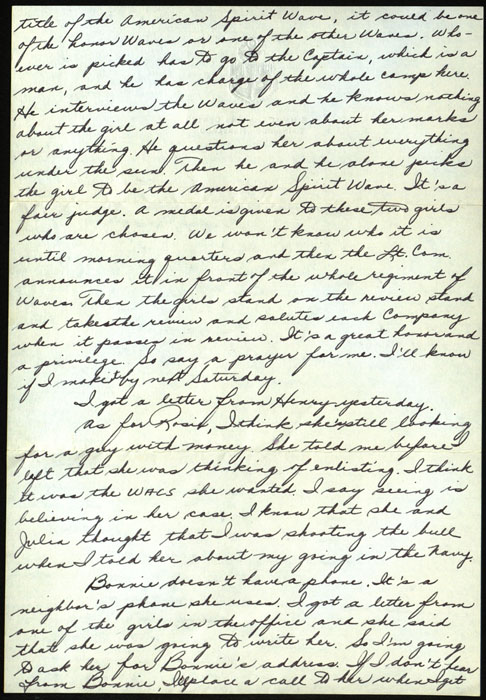 title of the American Spirit Wave, it could be one
of the honor Waves or one of the other Waves. Who-
ever is picked has to go to the Captain, which is a
man, and he has charge of the whole camp here.
He interviews the Waves and he knows nothing
about the girl at all not even about her marks
or anything. He questions her about everything
under the sun. Then he and he alone picks
the girl to be the American Spirit Wave. It's a
fair judge. A medal is given to these two girls
who are chosen. We won't know who it is
until morning quarters and then the Lt. Com.
announces it in front of the whole regiment of
Waves. Then the girls stand on the review stand
and takes the review and salutes each Company
when it passes in review. It's a great honor and
a privilege. So say a prayer for me. I'll know
if I make it by next Saturday.
I got a letter from Henry yesterday.
As for Rosie, I think she's still looking
for a guy with money. She told me before I
left that she was thinking of enlisting. I think
it was the WACS she wanted. I say seeing is
believing in her case. I know that she and
Julia thought that I was shooting the bull
when I told her about my going in the Navy.
Bonnie doesn't have a phone. It's a
neighbor's phone she uses. I got a letter from
one of the girls in the office and she said
that she was going to write her. So I'm going
to ask her for Bonnie's address. If I don't hear
from Bonnie, I'll place a call to her when I get